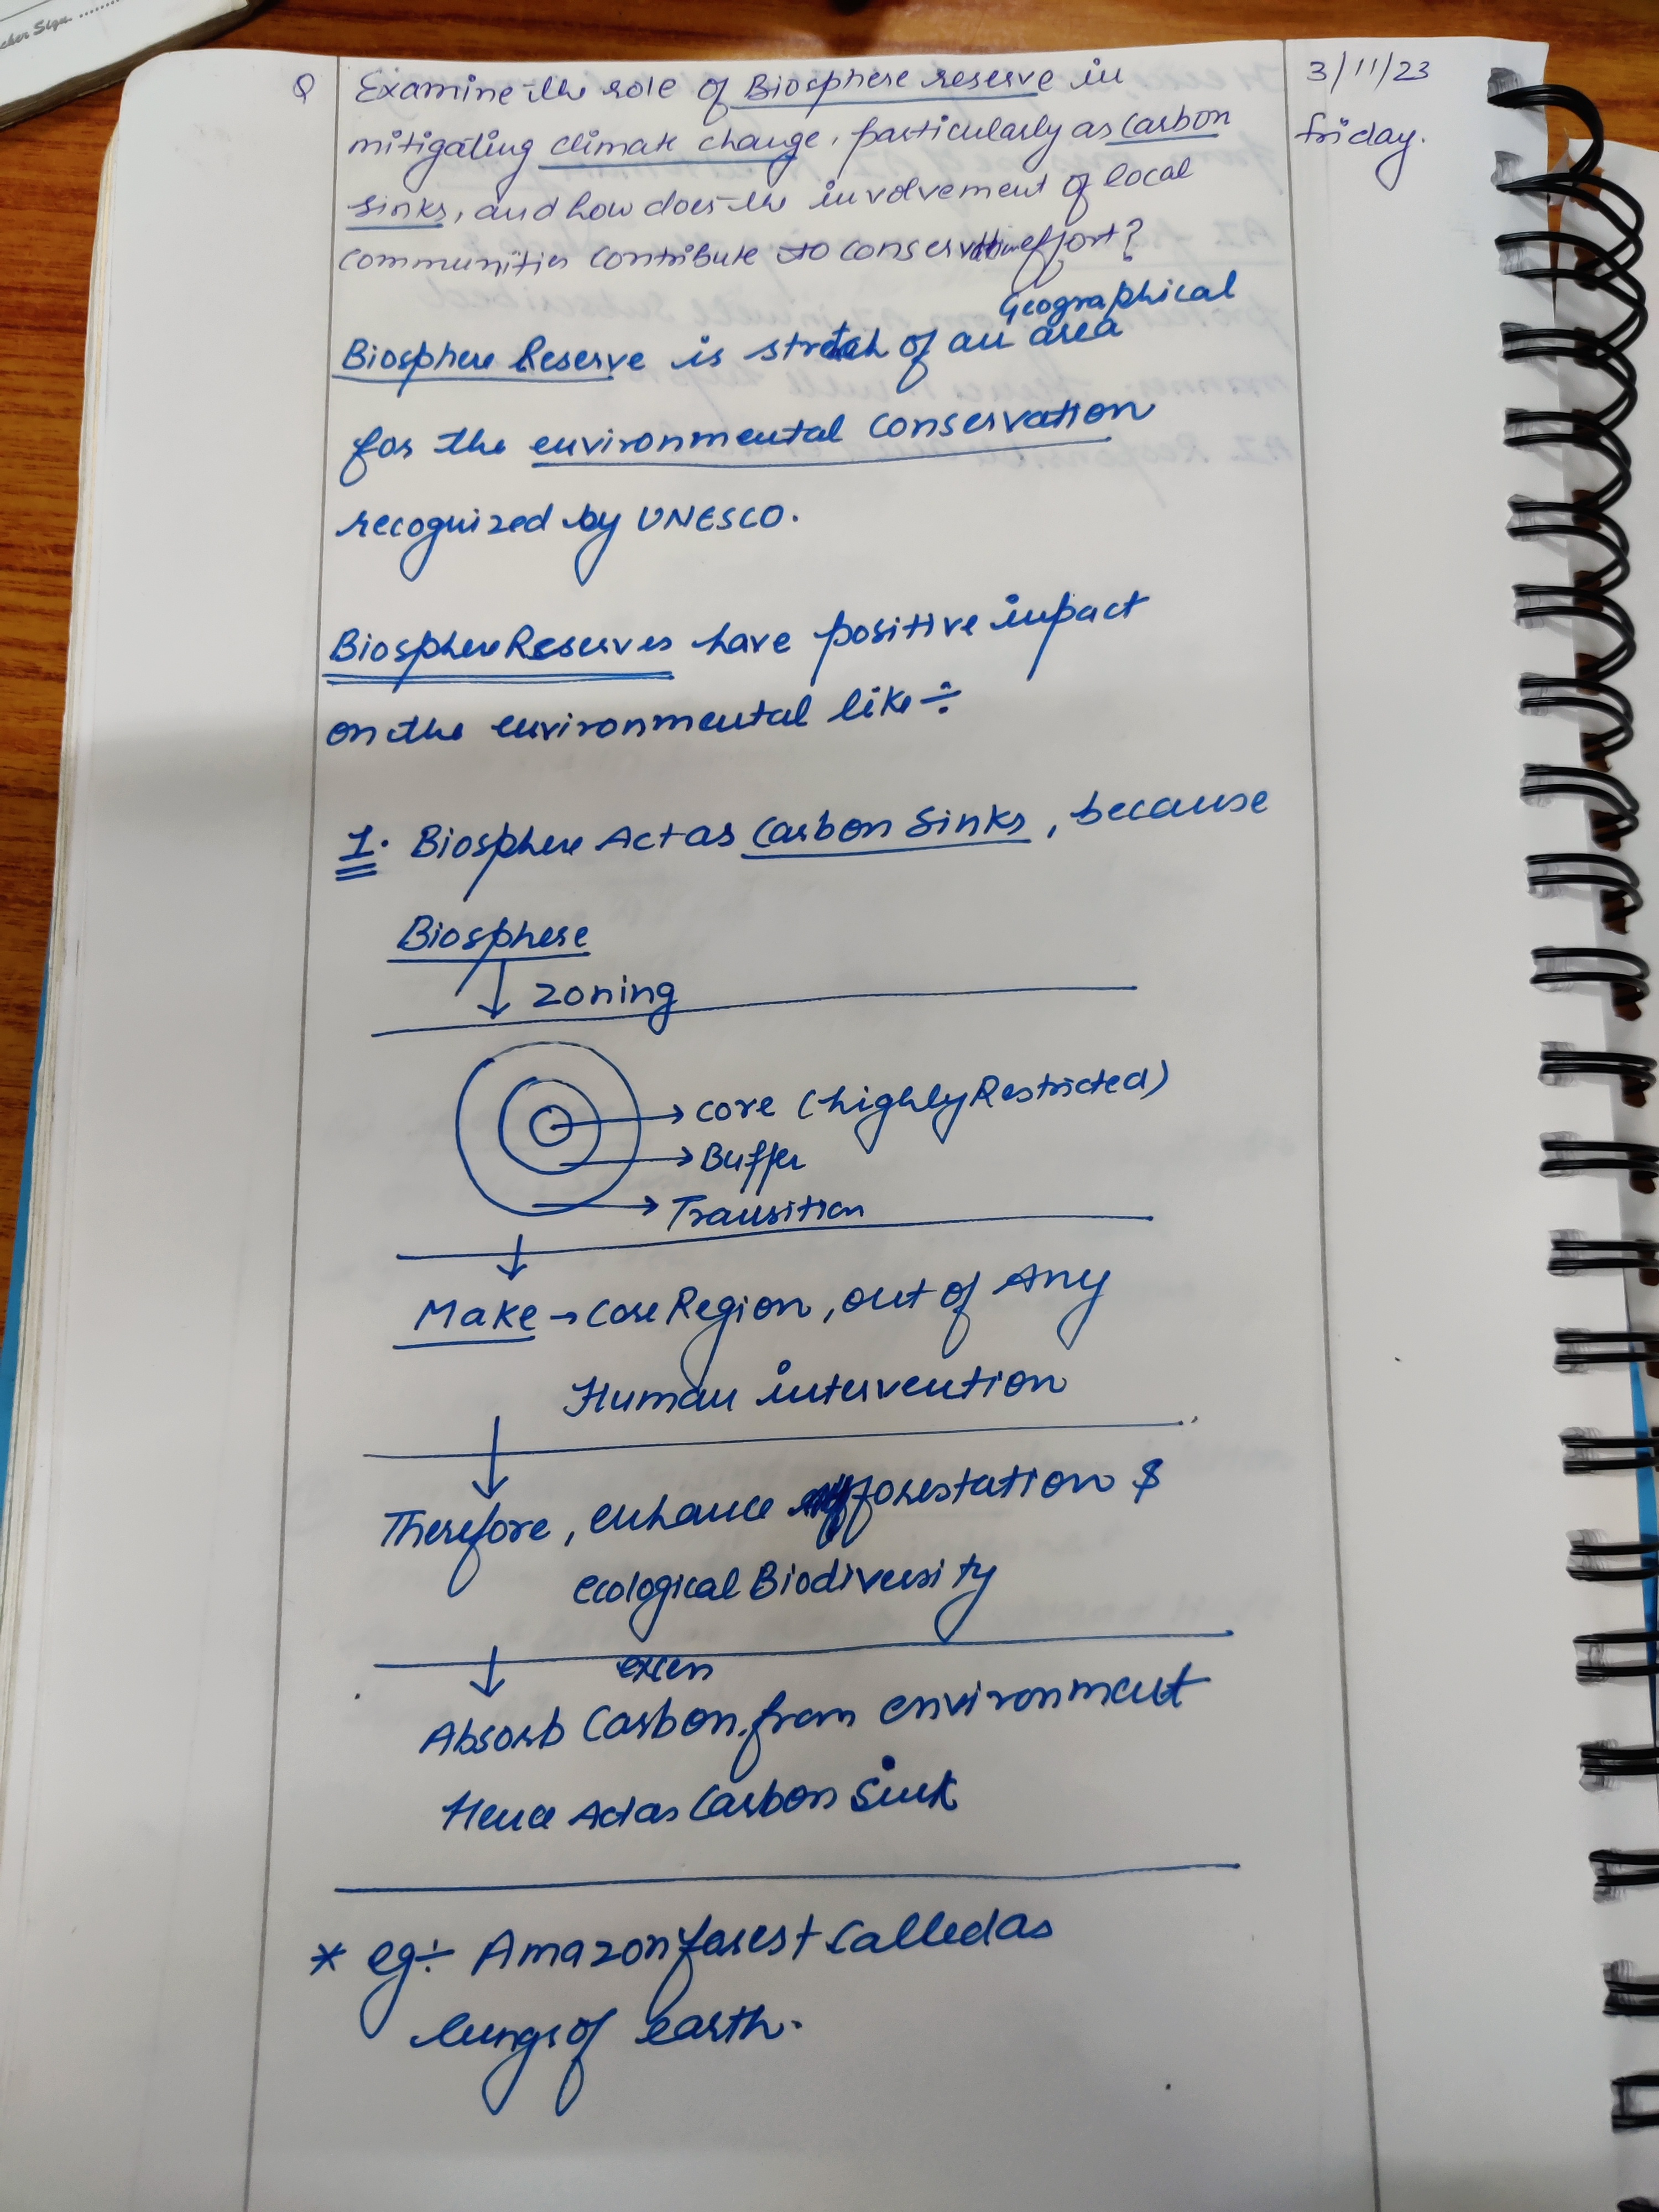 cher Sign. ........
Q Examine the role of Biosphere reserve in
3/11/23
mitigating climate change, particularly as carbon
friday.
sinks, and how does the involvement of local
communities contribute to conservation effort?
Geographical
Biosphere Reserve is stretch of an area
for the environmental conservation
recognized by UNESCO.
Biosphere Reserves have positive impact
on the environmental like ÷
1. Biosphere Act as Carbon Sinks, because
Biosphere
↓ zoning
→ core (highly Restricted)
→ Buffer
→ Transition
↓
Make → Core Region, out of Any
Human intervention
↓
Therefore, enhance afforestation $
ecological Biodiversity
↓ excess
Absorb Carbon from environment
Hence Act as Carbon Sink
* eg ÷ Amazon forest called as
lungs of earth.